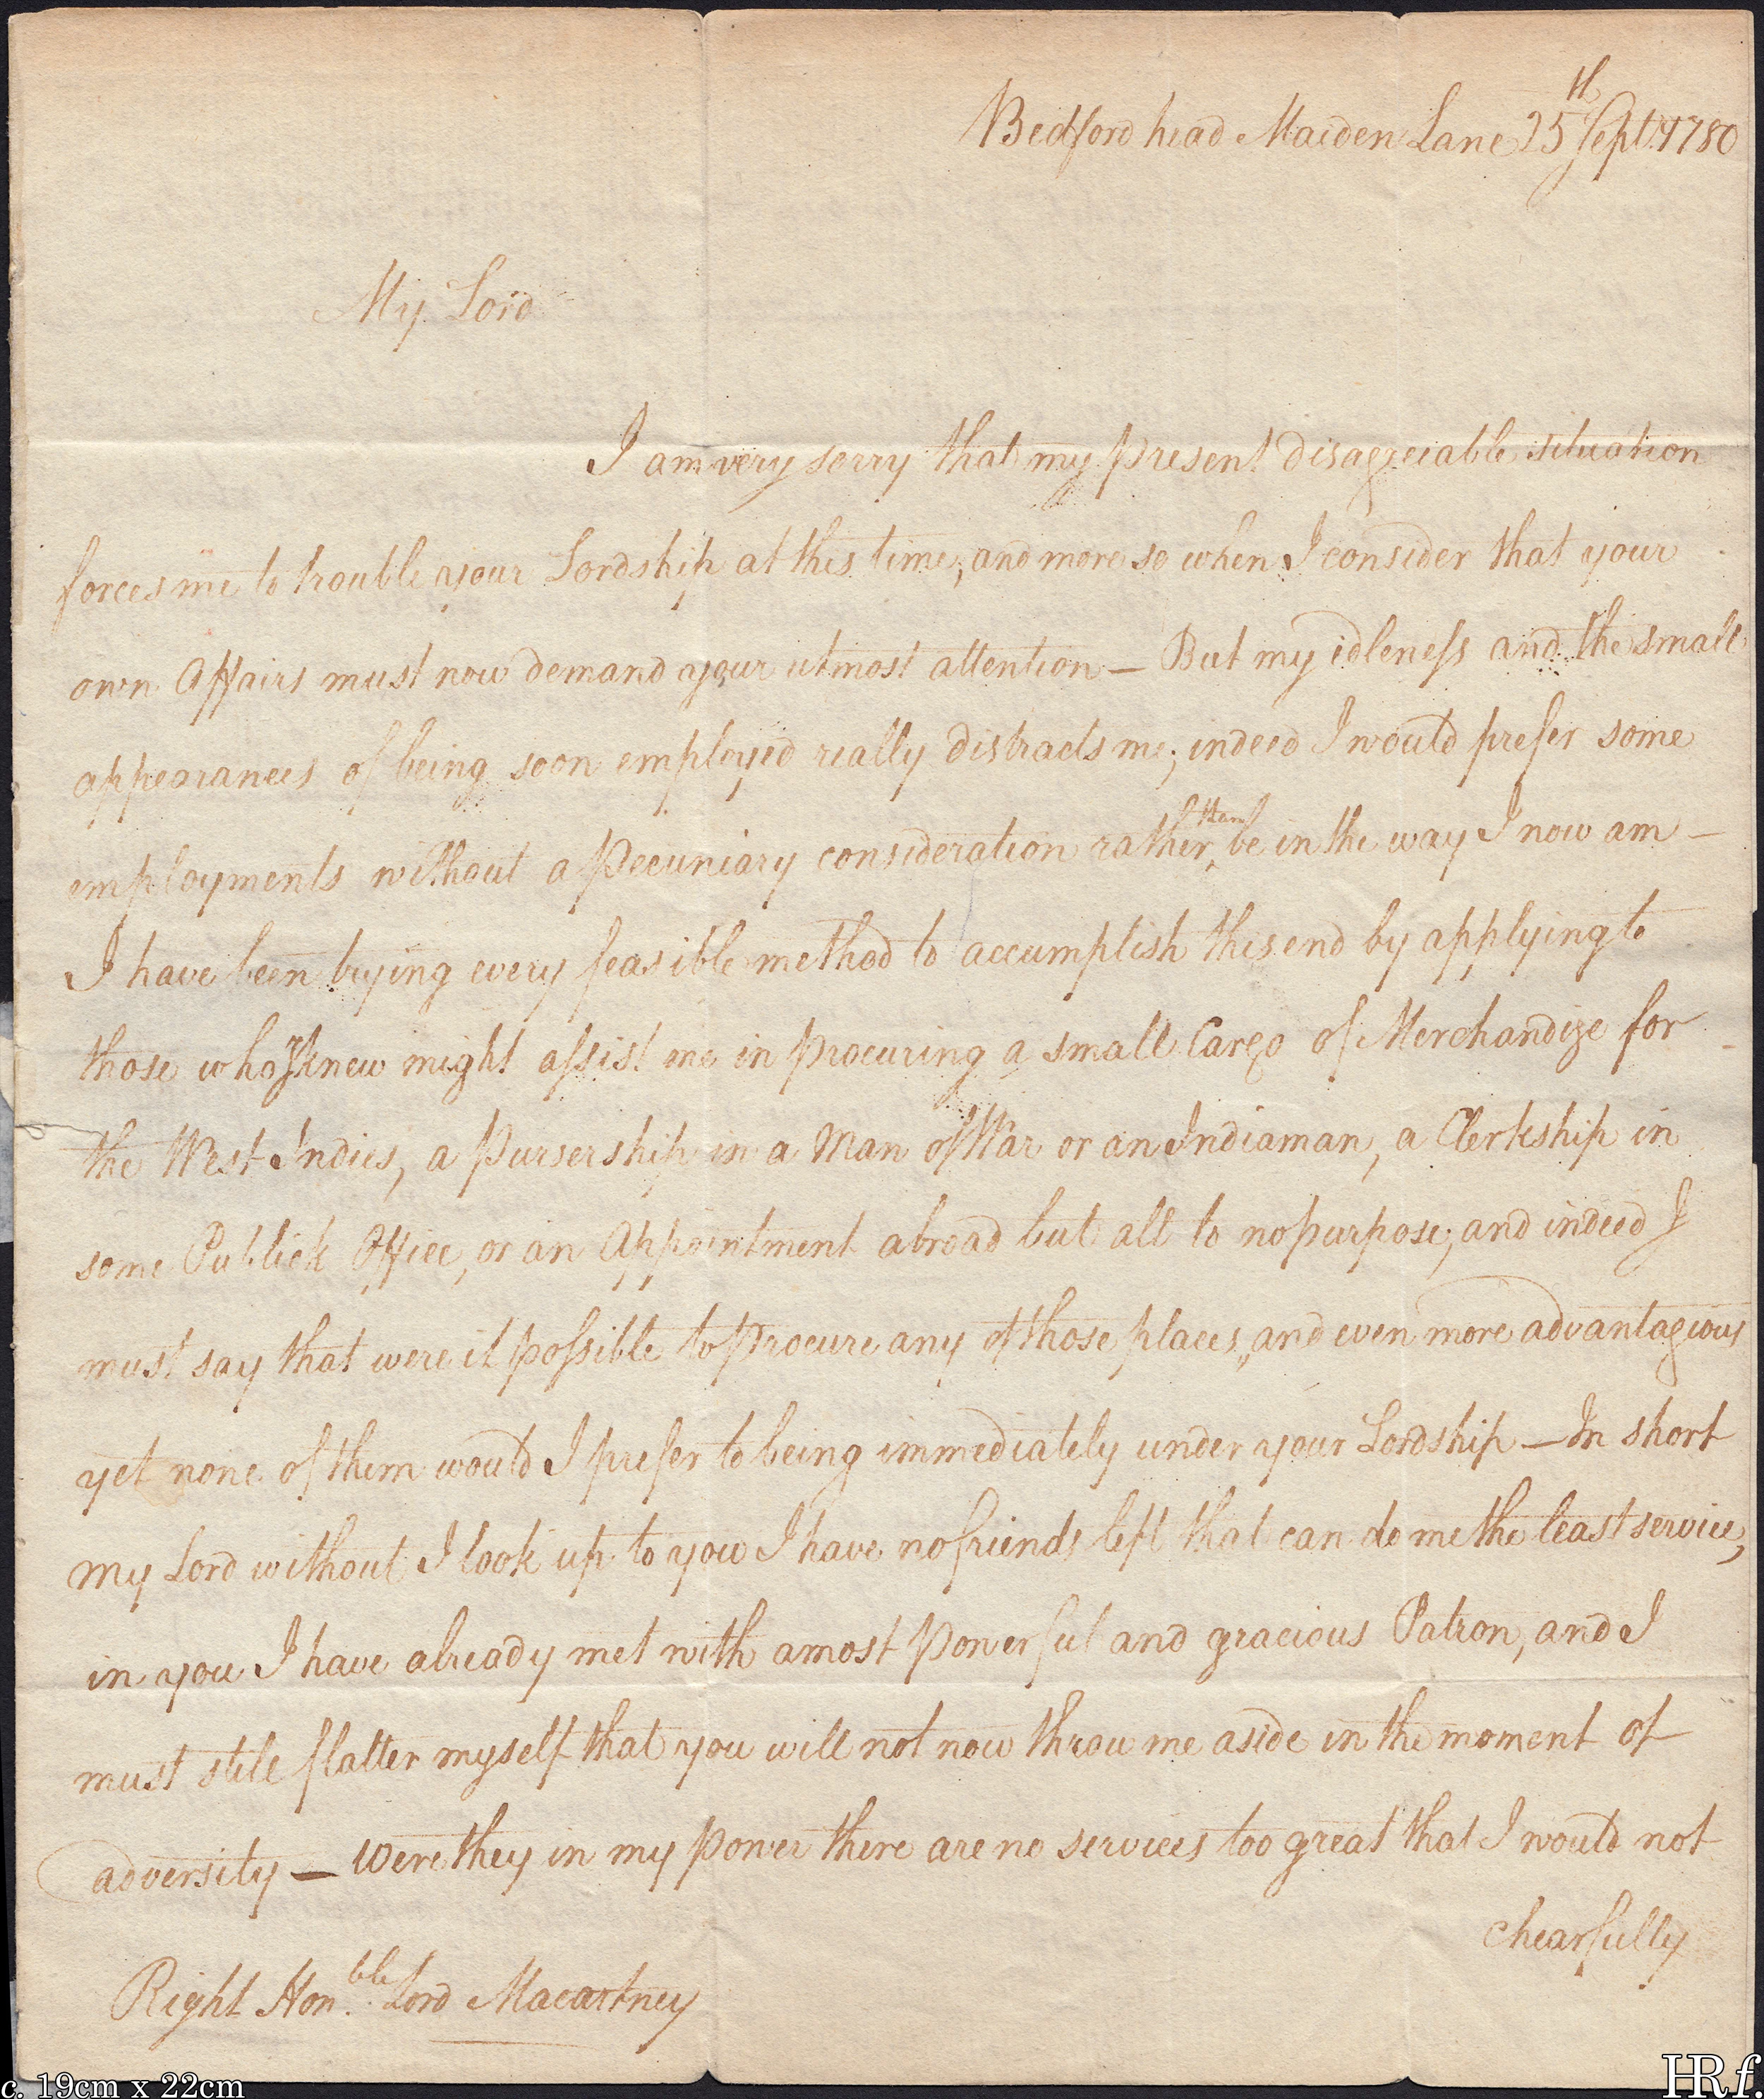 Bedford head Maiden Lane 25th Sept. 1780
My Lord
I am very sorry that my present disagreeable situation
forces me to trouble your Lordship at this time, and more so when I consider that your
own Affairs must now demand your utmost attention — But my idleness and the small
appearances of being soon employed really distracts me; indeed I would prefer some
employments without a Pecuniary consideration rather than be in the way I now am —
I have been trying every feasible method to accumplish this end by applying to
those who I knew might assist me in procuring a small Cargo of Merchandize for
the West Indies, a Pursership in a Man of War or an Indiaman, a Clerkship in
some Publick Office, or an Appointment abroad but all to no purpose; and indeed I
must say that were it possible to procure any of those places, and even more advantageous
yet none of them would I prefer to being immediately under your Lordship — In short
my Lord without I look up to you I have no friends left that can do me the least service,
in you I have already met with a most powerful and gracious Patron, and I
must stile flatter myself that you will not now throw me aside in the moment of
adversity — Were they in my power there are no services too great that I would not
chearfully
Right Hon.ble Lord Macartney
c. 19cm x 22cm
HRf.